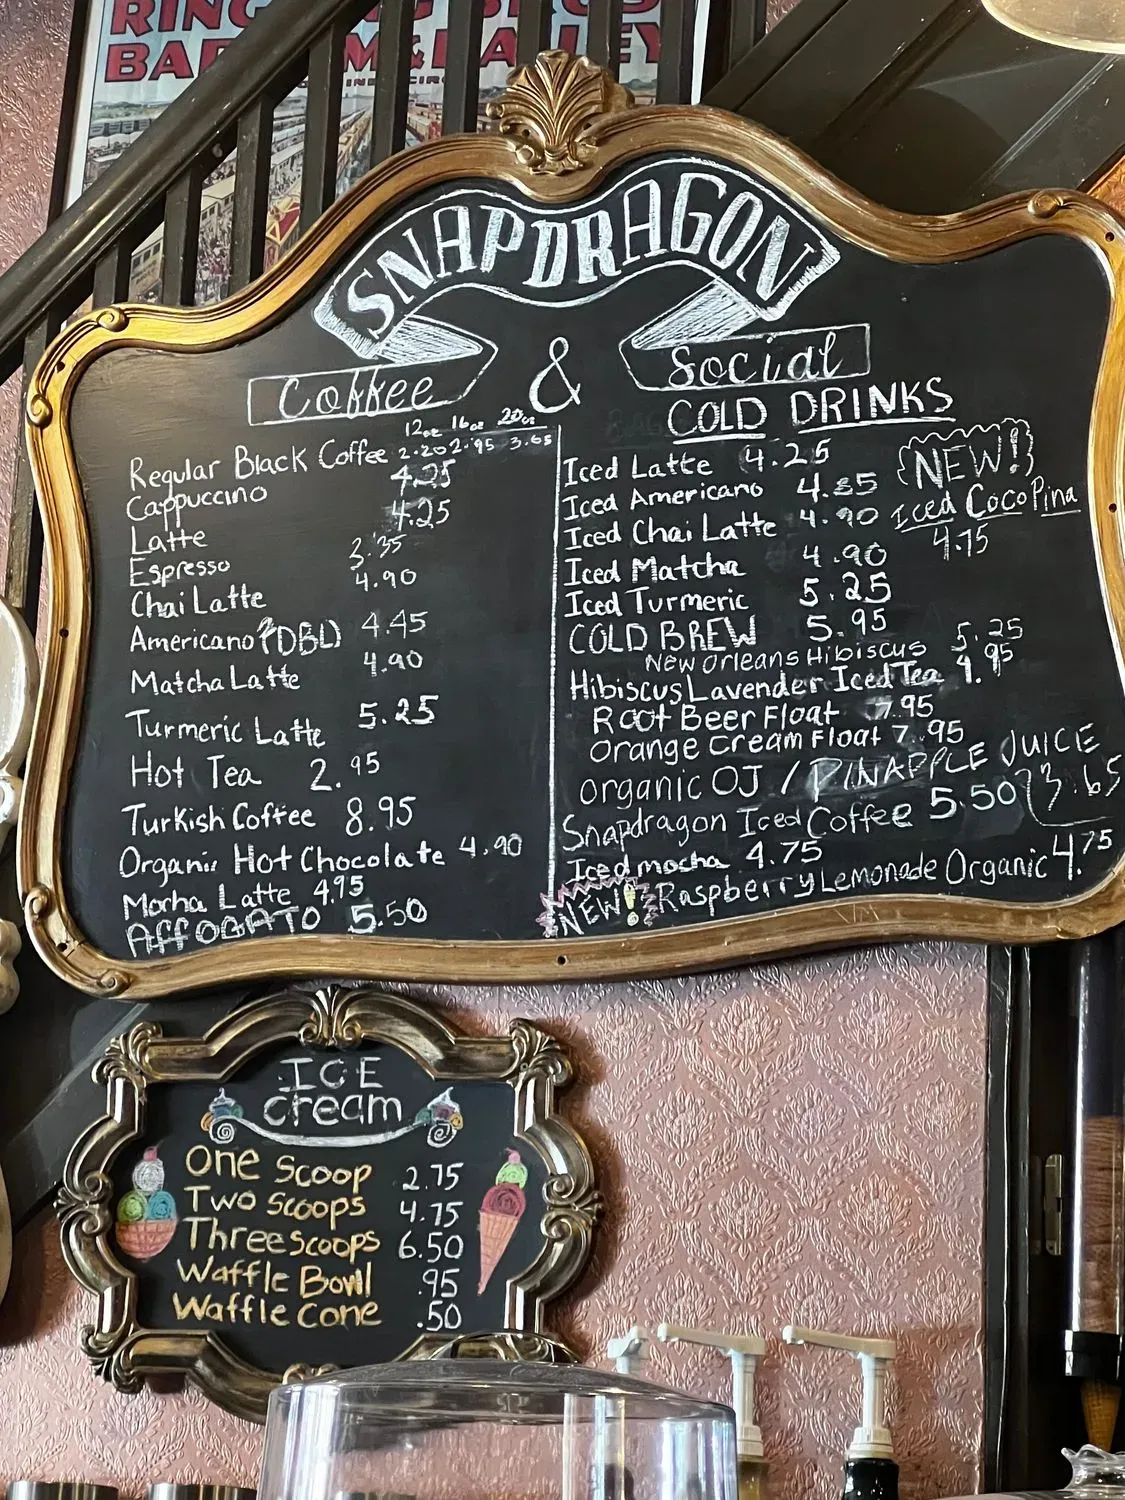 RINGLING BROS
BARNUM & BAILEY
SNAPDRAGON
Coffee & Social
12oz 16oz 20oz
Regular Black Coffee 2.20 2.95 3.65
Cappuccino 4.25
Latte 4.25
Espresso 3.35
Chai Latte 4.90
Americano (DBL) 4.45
Matcha Latte 4.90
Turmeric Latte 5.25
Hot Tea 2.95
Turkish Coffee 8.95
Organic Hot Chocolate 4.90
Mocha Latte 4.95
AFFOGATO 5.50
COLD DRINKS
Iced Latte 4.25
Iced Americano 4.85
Iced Chai Latte 4.90
Iced Matcha 4.90
Iced Turmeric 5.25
COLD BREW 5.95
New Orleans Hibiscus 5.25
Hibiscus Lavender Iced Tea 4.95
Root Beer Float 7.95
Orange Cream Float 7.95
organic OJ / PINAPPLE JUICE 3.65
Snapdragon Iced Coffee 5.50
Iced mocha 4.75
NEW! Raspberry Lemonade Organic 4.75
NEW!
Iced CocoPina
4.75
ICE
cream
One Scoop 2.75
Two scoops 4.75
Three scoops 6.50
Waffle Bowl .95
Waffle cone .50